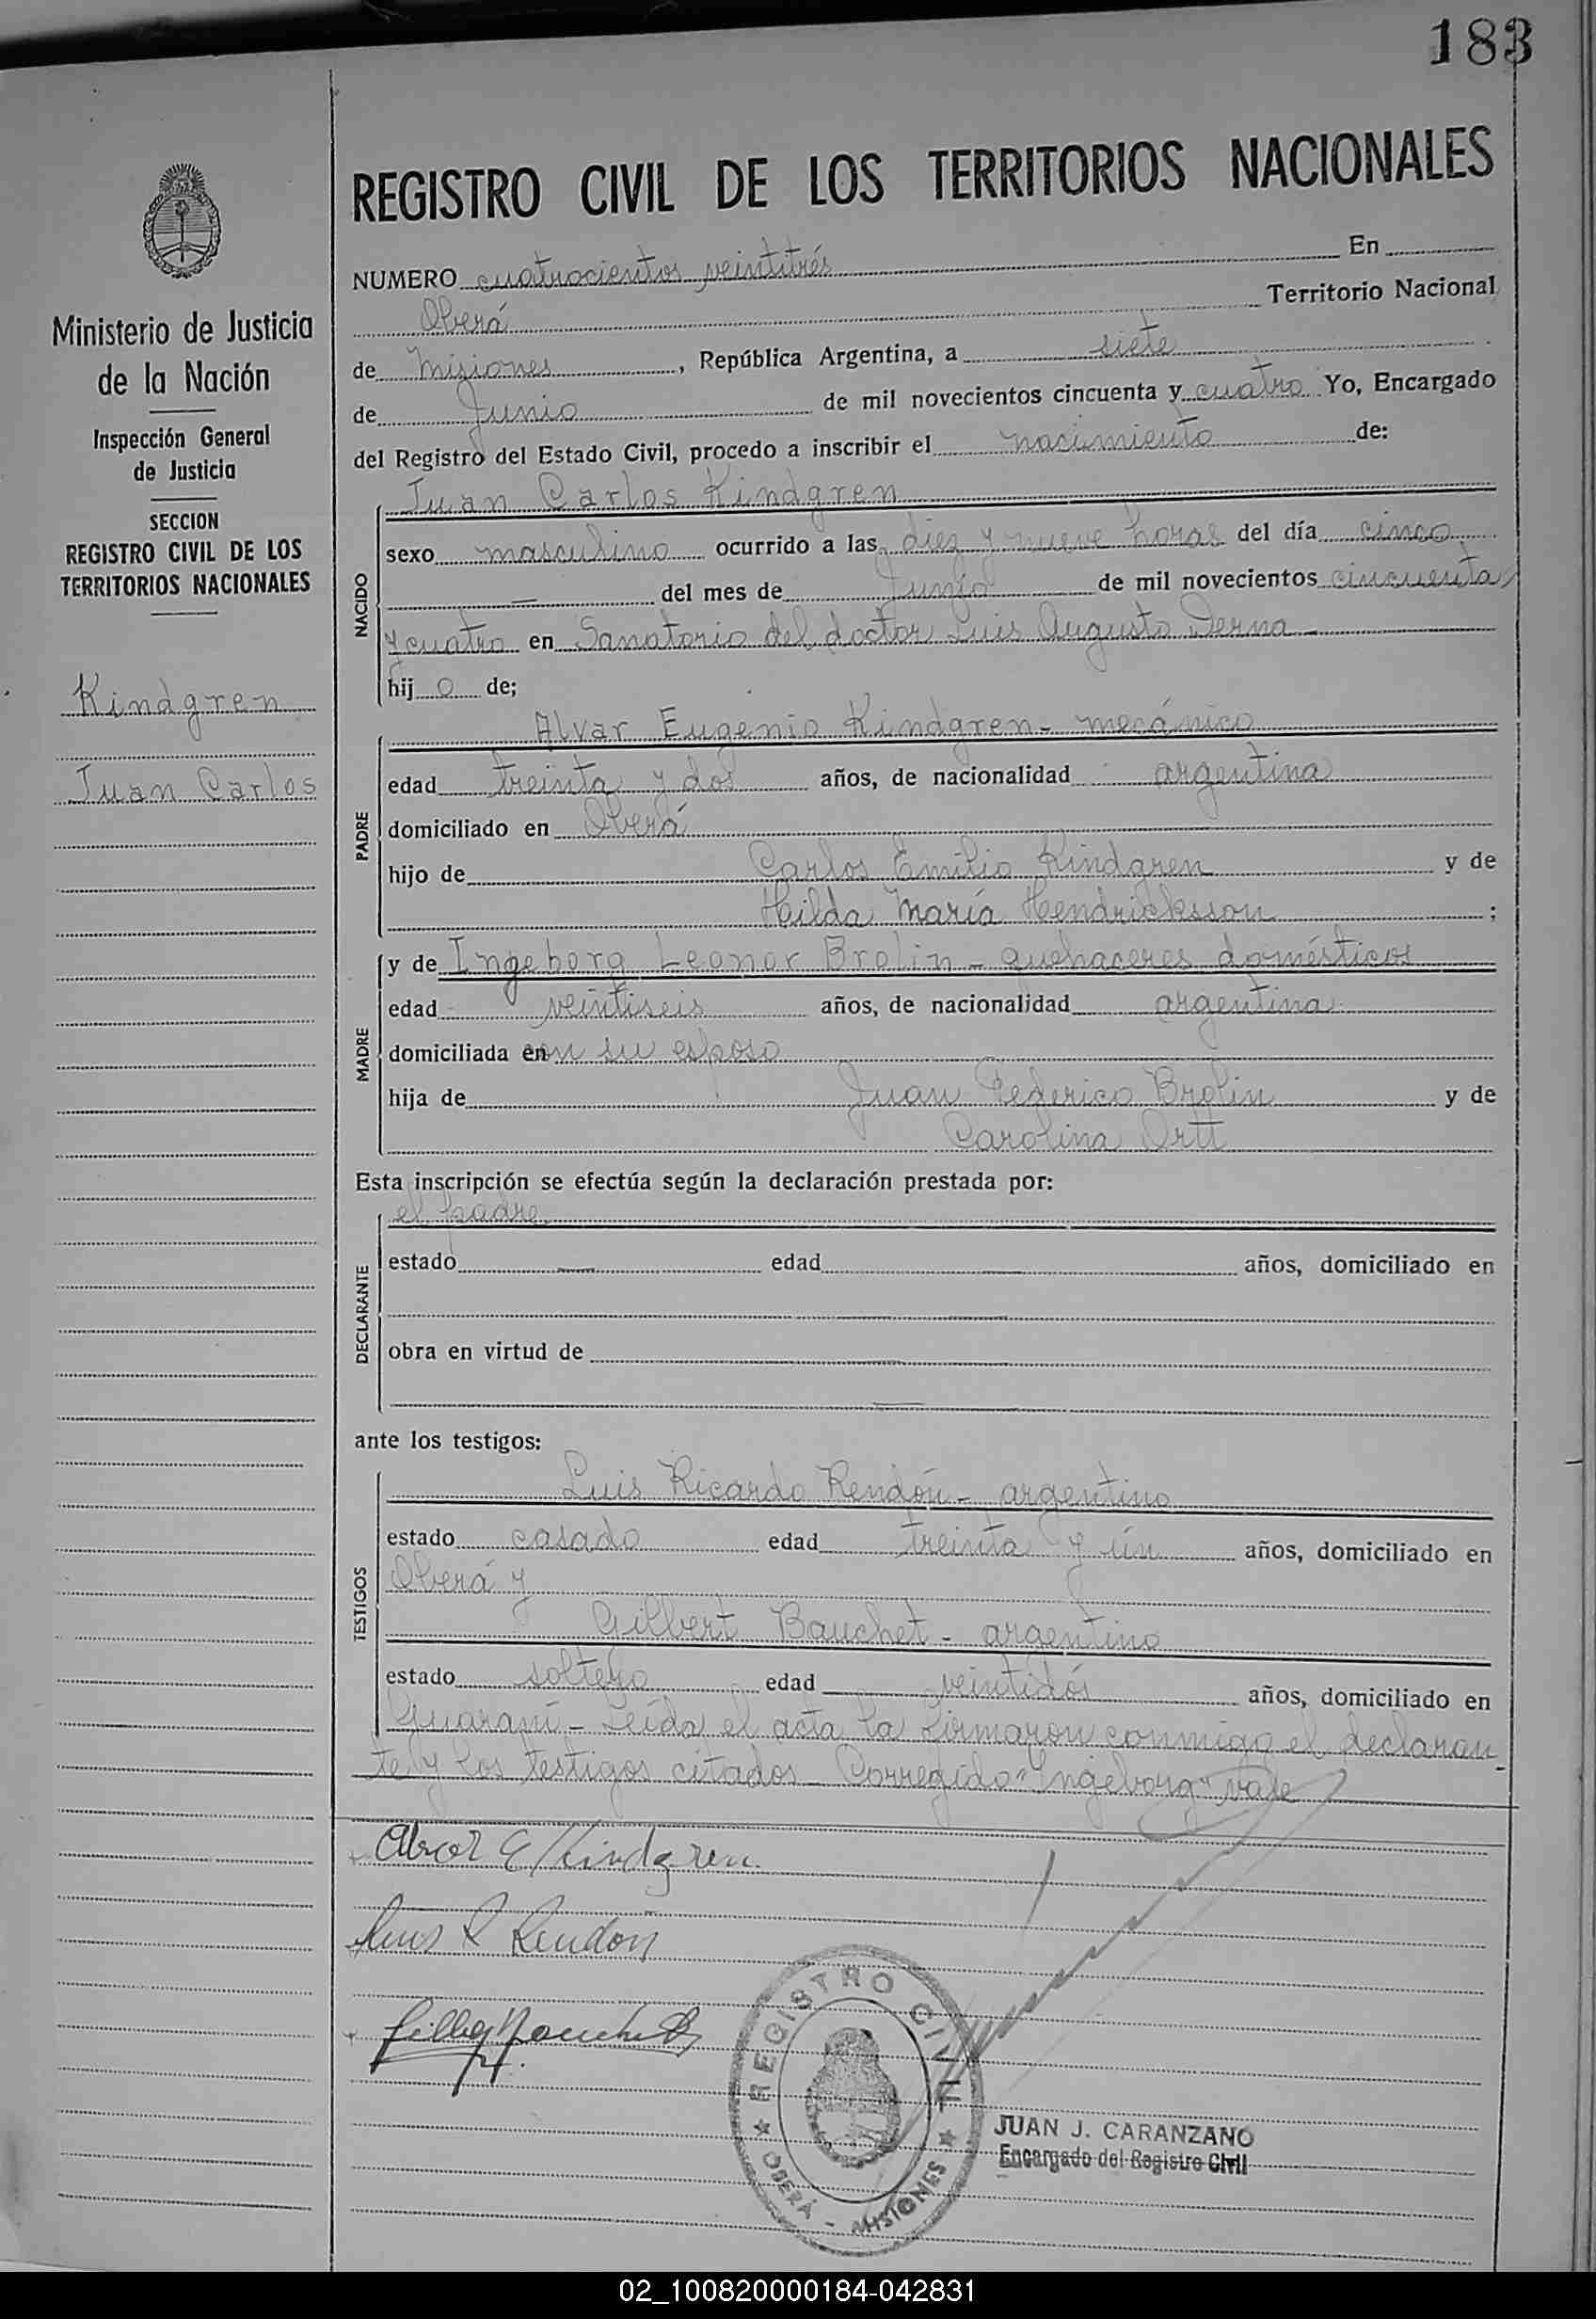 183
REGISTRO CIVIL DE LOS TERRITORIOS NACIONALES
NUMERO cuatrocientos veintitrés En
Oberá Territorio Nacional
de Misiones, República Argentina, a siete
de Junio de mil novecientos cincuenta y cuatro Yo, Encargado
del Registro del Estado Civil, procedo a inscribir el nacimiento de:
Ministerio de Justicia
de la Nación
Inspección General
de Justicia
SECCION
REGISTRO CIVIL DE LOS
TERRITORIOS NACIONALES
Kindgren
Juan Carlos
NACIDO
Juan Carlos Kindgren
sexo masculino ocurrido a las diez y nueve horas del día cinco
— del mes de Junio de mil novecientos cincuenta
y cuatro en Sanatorio del doctor Luis Augusto Derna
hijo de;
PADRE
Alvar Eugenio Kindgren - mecánico
edad treinta y dos años, de nacionalidad argentina
domiciliado en Oberá
hijo de Carlos Emilio Kindgren y de
Hilda María Hendricksson ;
MADRE
y de Ingeborg Leonor Brolin - quehaceres domésticos
edad veintiseis años, de nacionalidad argentina
domiciliada en con su esposo
hija de Juan Federico Brolin y de
Carolina Ortt
Esta inscripción se efectúa según la declaración prestada por:
DECLARANTE
el padre
estado — edad — años, domiciliado en
—
obra en virtud de —
—
ante los testigos:
TESTIGOS
Luis Ricardo Rendón - argentino
estado casado edad treinta y ún años, domiciliado en
Oberá y
Gilbert Bauchet - argentino
estado soltero edad veintidós años, domiciliado en
Guaraní - Leída el acta la firmaron conmigo el declaran
te y los testigos citados - Corregido "Ingeborg" vale
Alvar E Kindgren
Luis R Rendón
REGISTRO CIVIL
OBERÁ - MISIONES
JUAN J. CARANZANO
Encargado del Registro Civil
02_100820000184-042831